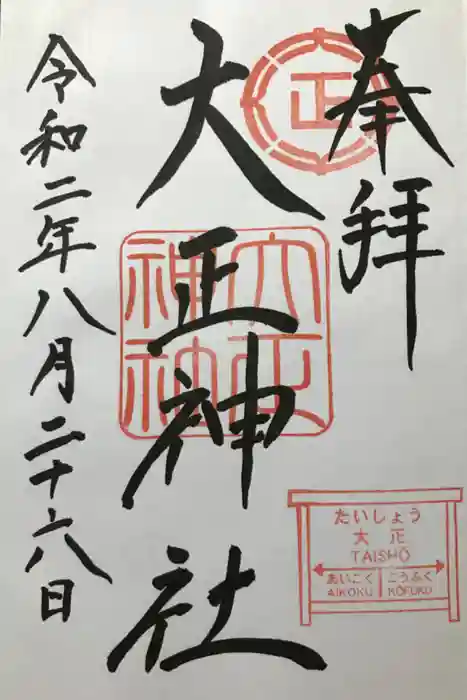 奉拝
正
大正神社
大正神社
令和二年八月二十六日
たいしょう
大正
TAISHŌ
あいこく こうふく
AIKOKU KŌFUKU